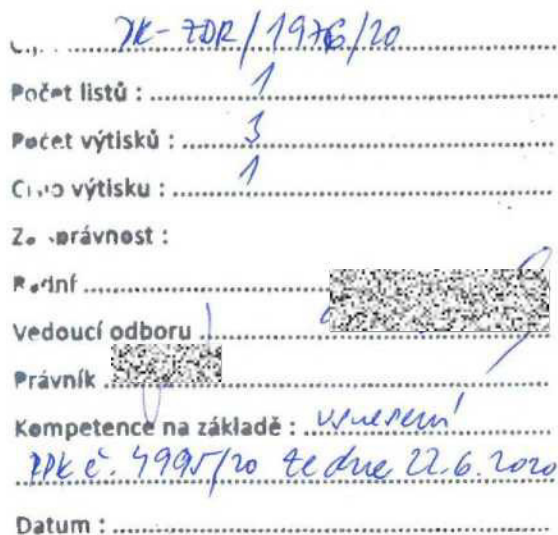 JK-ZDR/1976/20
Počet listů : 1
Počet výtisků : 3
Číslo výtisku : 1
Za správnost :
Radní
Vedoucí odboru
Právník
Kompetence na základě : usnesení
RPK č. 4995/20 ze dne 22.6.2020
Datum :